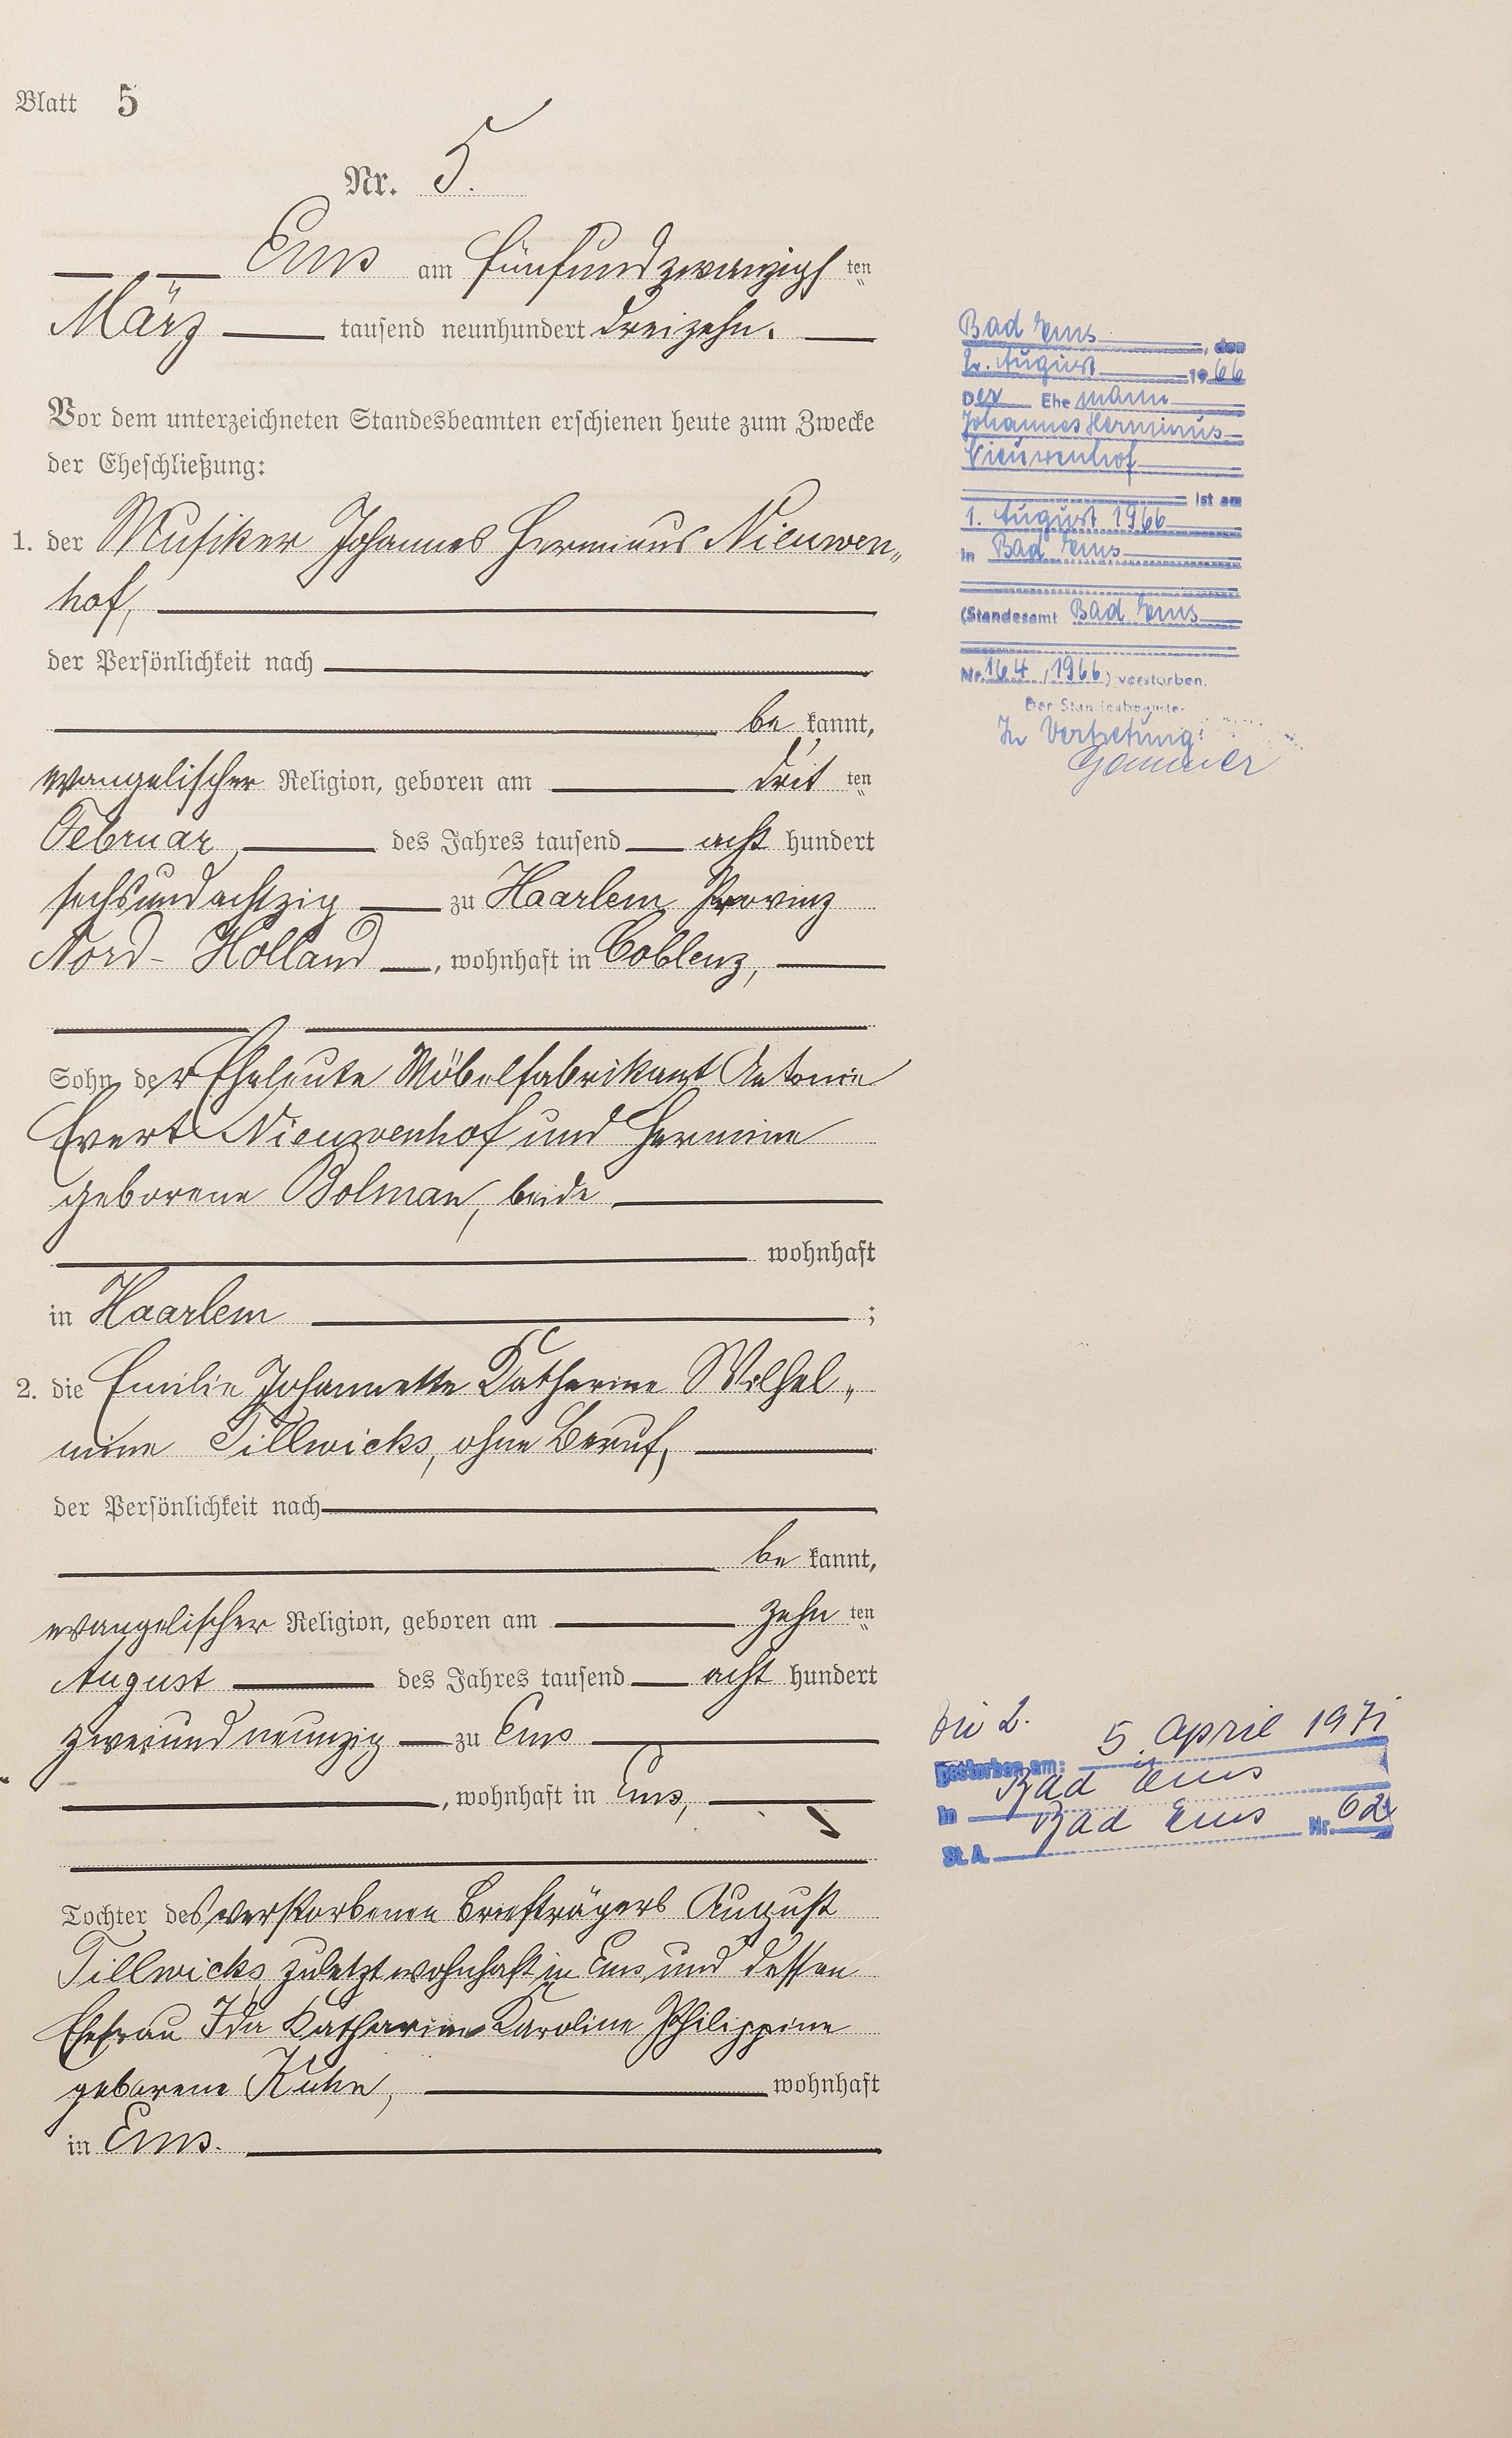 Blatt 5
Nr. 5.
Ems am fünfundzwanzigsten
März tausend neunhundert dreizehn.
Vor dem unterzeichneten Standesbeamten erschienen heute zum Zwecke
der Eheschließung:
1. der Musiker Johannes Herminus Nieuwen„
hof,
der Persönlichkeit nach
be kannt,
evangelischer Religion, geboren am dritten
Februar, des Jahres tausend acht hundert
sechsundachtzig zu Haarlem Provinz
Nord- Holland, wohnhaft in Coblenz,
Sohn der Eheleute Möbelfabrikant Antonie
Evert Nieuwenhof und Hermine
geborene Bolman, beide
wohnhaft
in Haarlem ;
2. die Emilie Johannette Katharine Wilhel„
mine Tillwicks, ohne Beruf,
der Persönlichkeit nach
be kannt,
evangelischer Religion, geboren am zehnten
August des Jahres tausend acht hundert
zweiundneunzig zu Ems
, wohnhaft in Ems,
Tochter des verstorbenen Briefträgers August
Tillwicks, zuletzt wohnhaft in Ems und dessen
Ehefrau Ida Katharine Karoline Philippine
geborene Kuhn, wohnhaft
in Ems.
Bad Ems, den
2. August 1966
Der Ehemann
Johannes Herminus
Nieuwenhof
ist am
1. August 1966
in Bad Ems
(Standesamt Bad Ems
Nr. 164 / 1966) verstorben.
Der Standesbeamte
In Vertretung:
Die 2.
gestorben am: 5. April 1971
in Bad Ems
St. A. Bad Ems Nr. 62